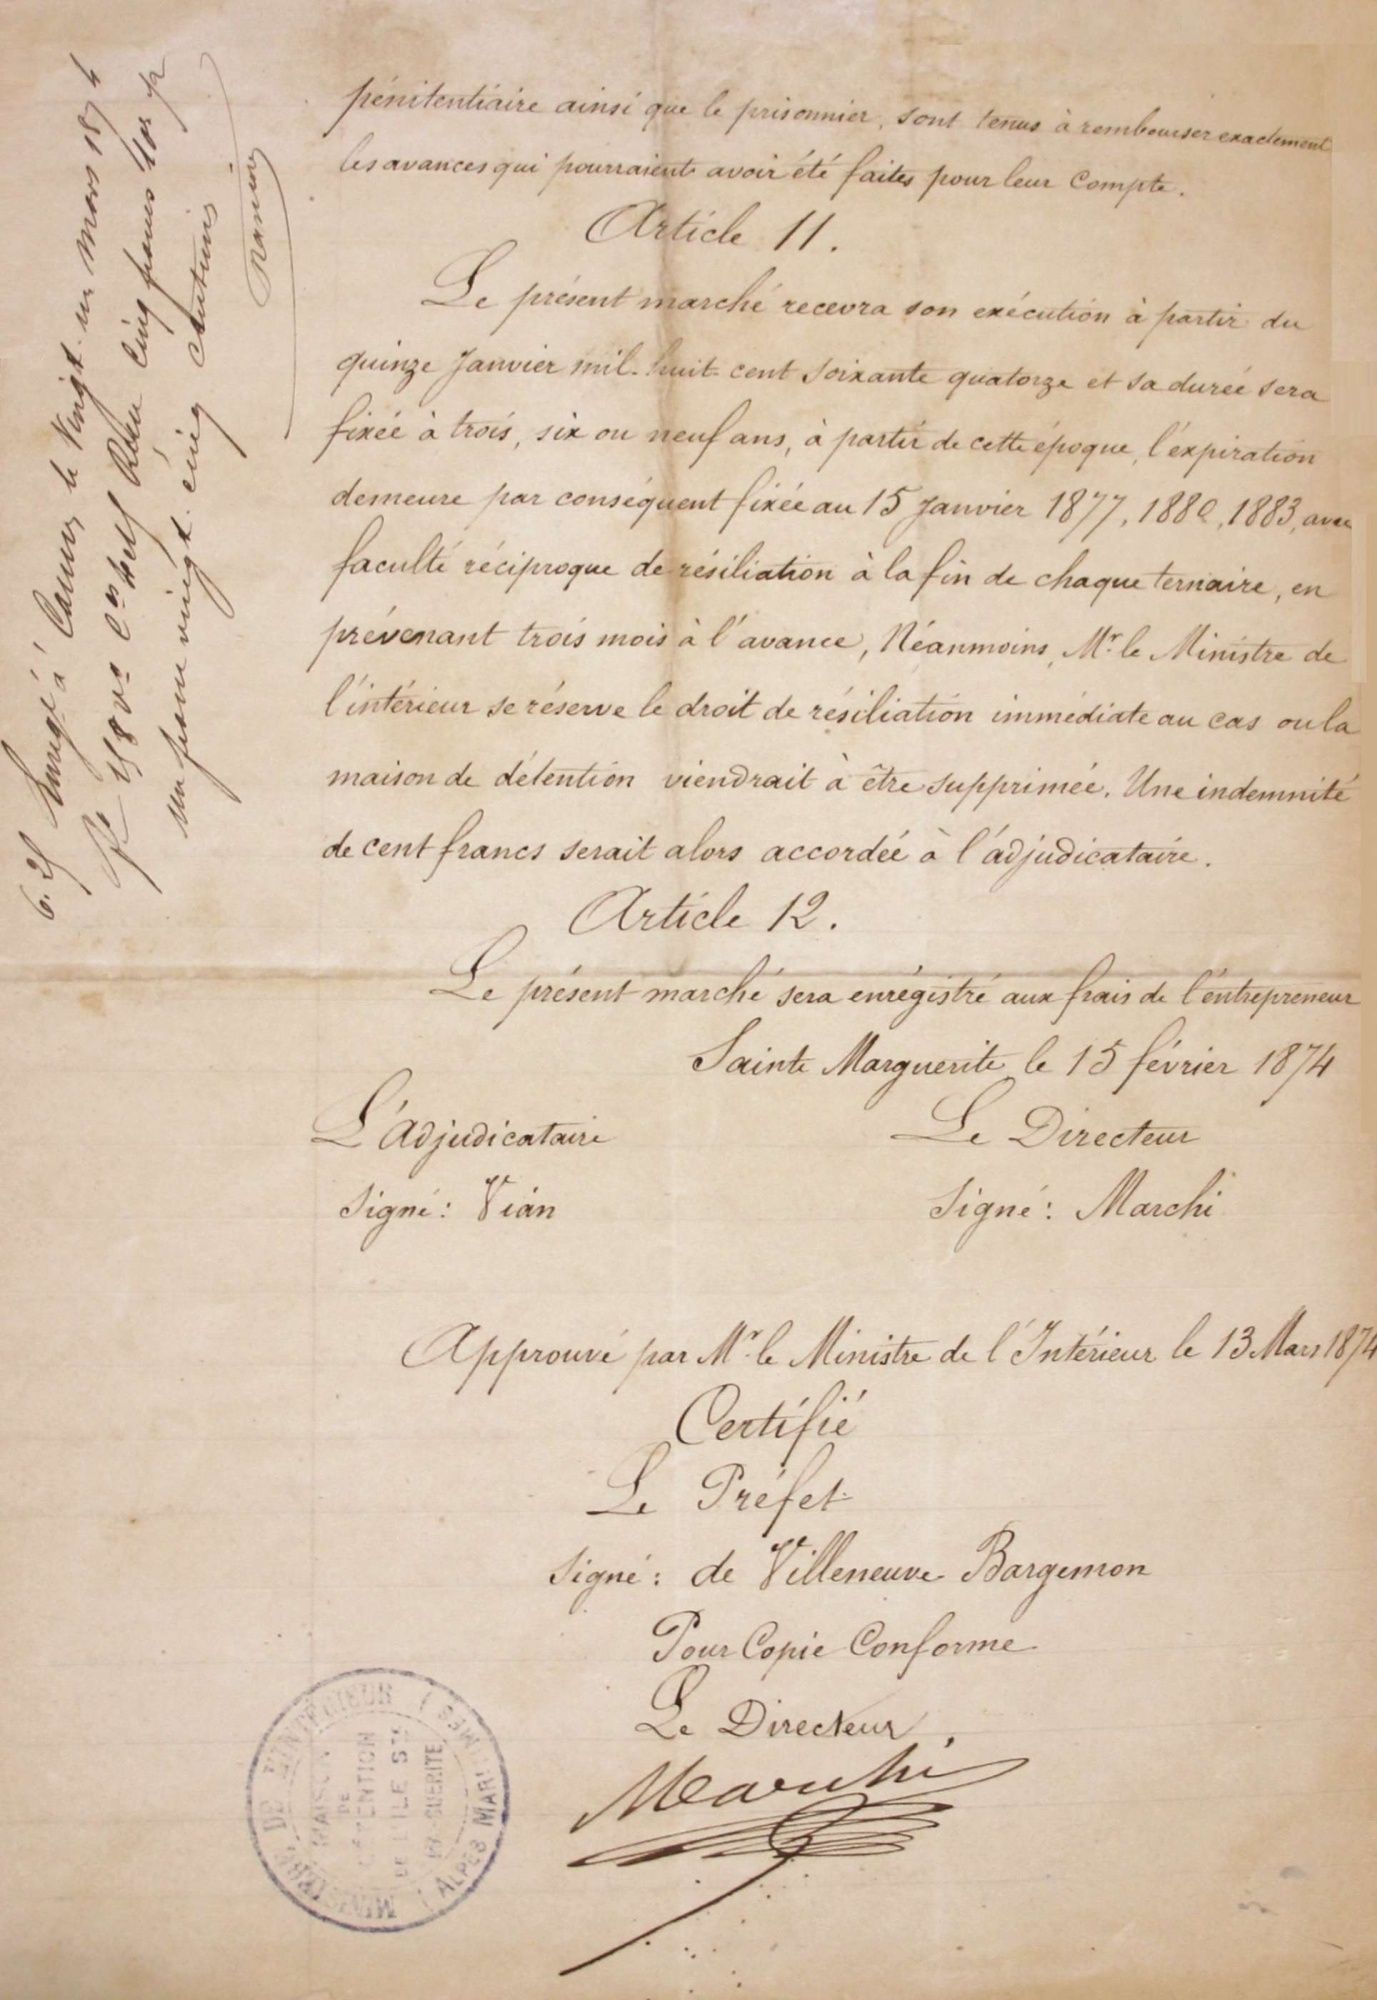 pénitentiaire ainsi que le prisonnier, sont tenus à rembourser exactement
les avances qui pourraient avoir été faites pour leur compte.
Article 11.
Le présent marché recevra son exécution à partir du
quinze Janvier mil-huit-cent soixante quatorze et sa durée sera
fixée à trois, six ou neuf ans, à partir de cette époque, l'expiration
demeure par conséquent fixée au 15 Janvier 1877, 1880, 1883, avec
faculté réciproque de résiliation à la fin de chaque ternaire, en
prévenant trois mois à l'avance, Néanmoins, Mr. le Ministre de
l'intérieur se réserve le droit de résiliation immédiate au cas ou la
maison de détention viendrait à être supprimée. Une indemnité
de cent francs serait alors accordée à l'adjudicataire.
Article 12.
Le présent marché sera enrégistré aux frais de l'entrepreneur
Sainte Marguerite le 15 février 1874
L'Adjudicataire
Le Directeur
Signé: Vian
Signé: Marchi
Approuvé par Mr le Ministre de l'Intérieur le 13 Mars 1874
Certifié
Le Préfet
Signé: de Villeneuve Bargemon
Pour Copie Conforme
Le Directeur
Marchi
MINISTÈRE DE L'INTÉRIEUR
(ALPES MARITIMES)
MAISON
DE
DÉTENTION
DE L'ILE STE
MARGUERITE
6.25 Enregé à Cannes le Vingt-un Mars 1874
un franc vingt-cinq centimes